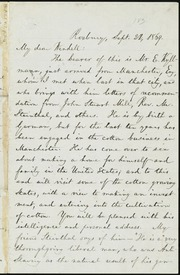 Roxbury, Sept. 24, 1869.
My dear Kendell:
The bearer of this is Mr. E.
just arrived from Manchester, Eng.,
whom I met when last in that city, and
who brings with him letters of recommen-
dation from John Stuart Mill, Rev. Mr.
Steinthal, and others. He is by birth
a German, but for the last ten years has
been engaged in the cotton business in
Manchester. He has come over to
see about making a home for himself and
family in the United States; and to this
end will visit some of the cotton-growing
States, with a view to making an invest-
ment, and entering into the cultivation
of cotton. You will be pleased with his
intelligence and personal address. My
friend Steinthal says of him: He is a
thoroughly liberal man, who hates
Slavery as the natural result of his gen-